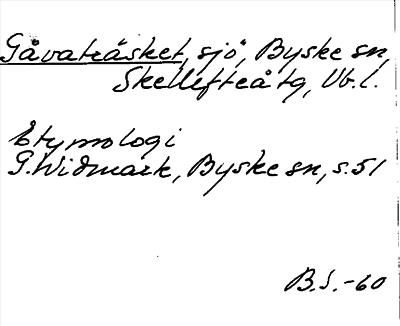 Gåvaträsket, sjö, Byske sn,
Skellefteå tg, Vb.l.
Etymologi
G. Widmark, Byske sn, s. 51
B.S.-60